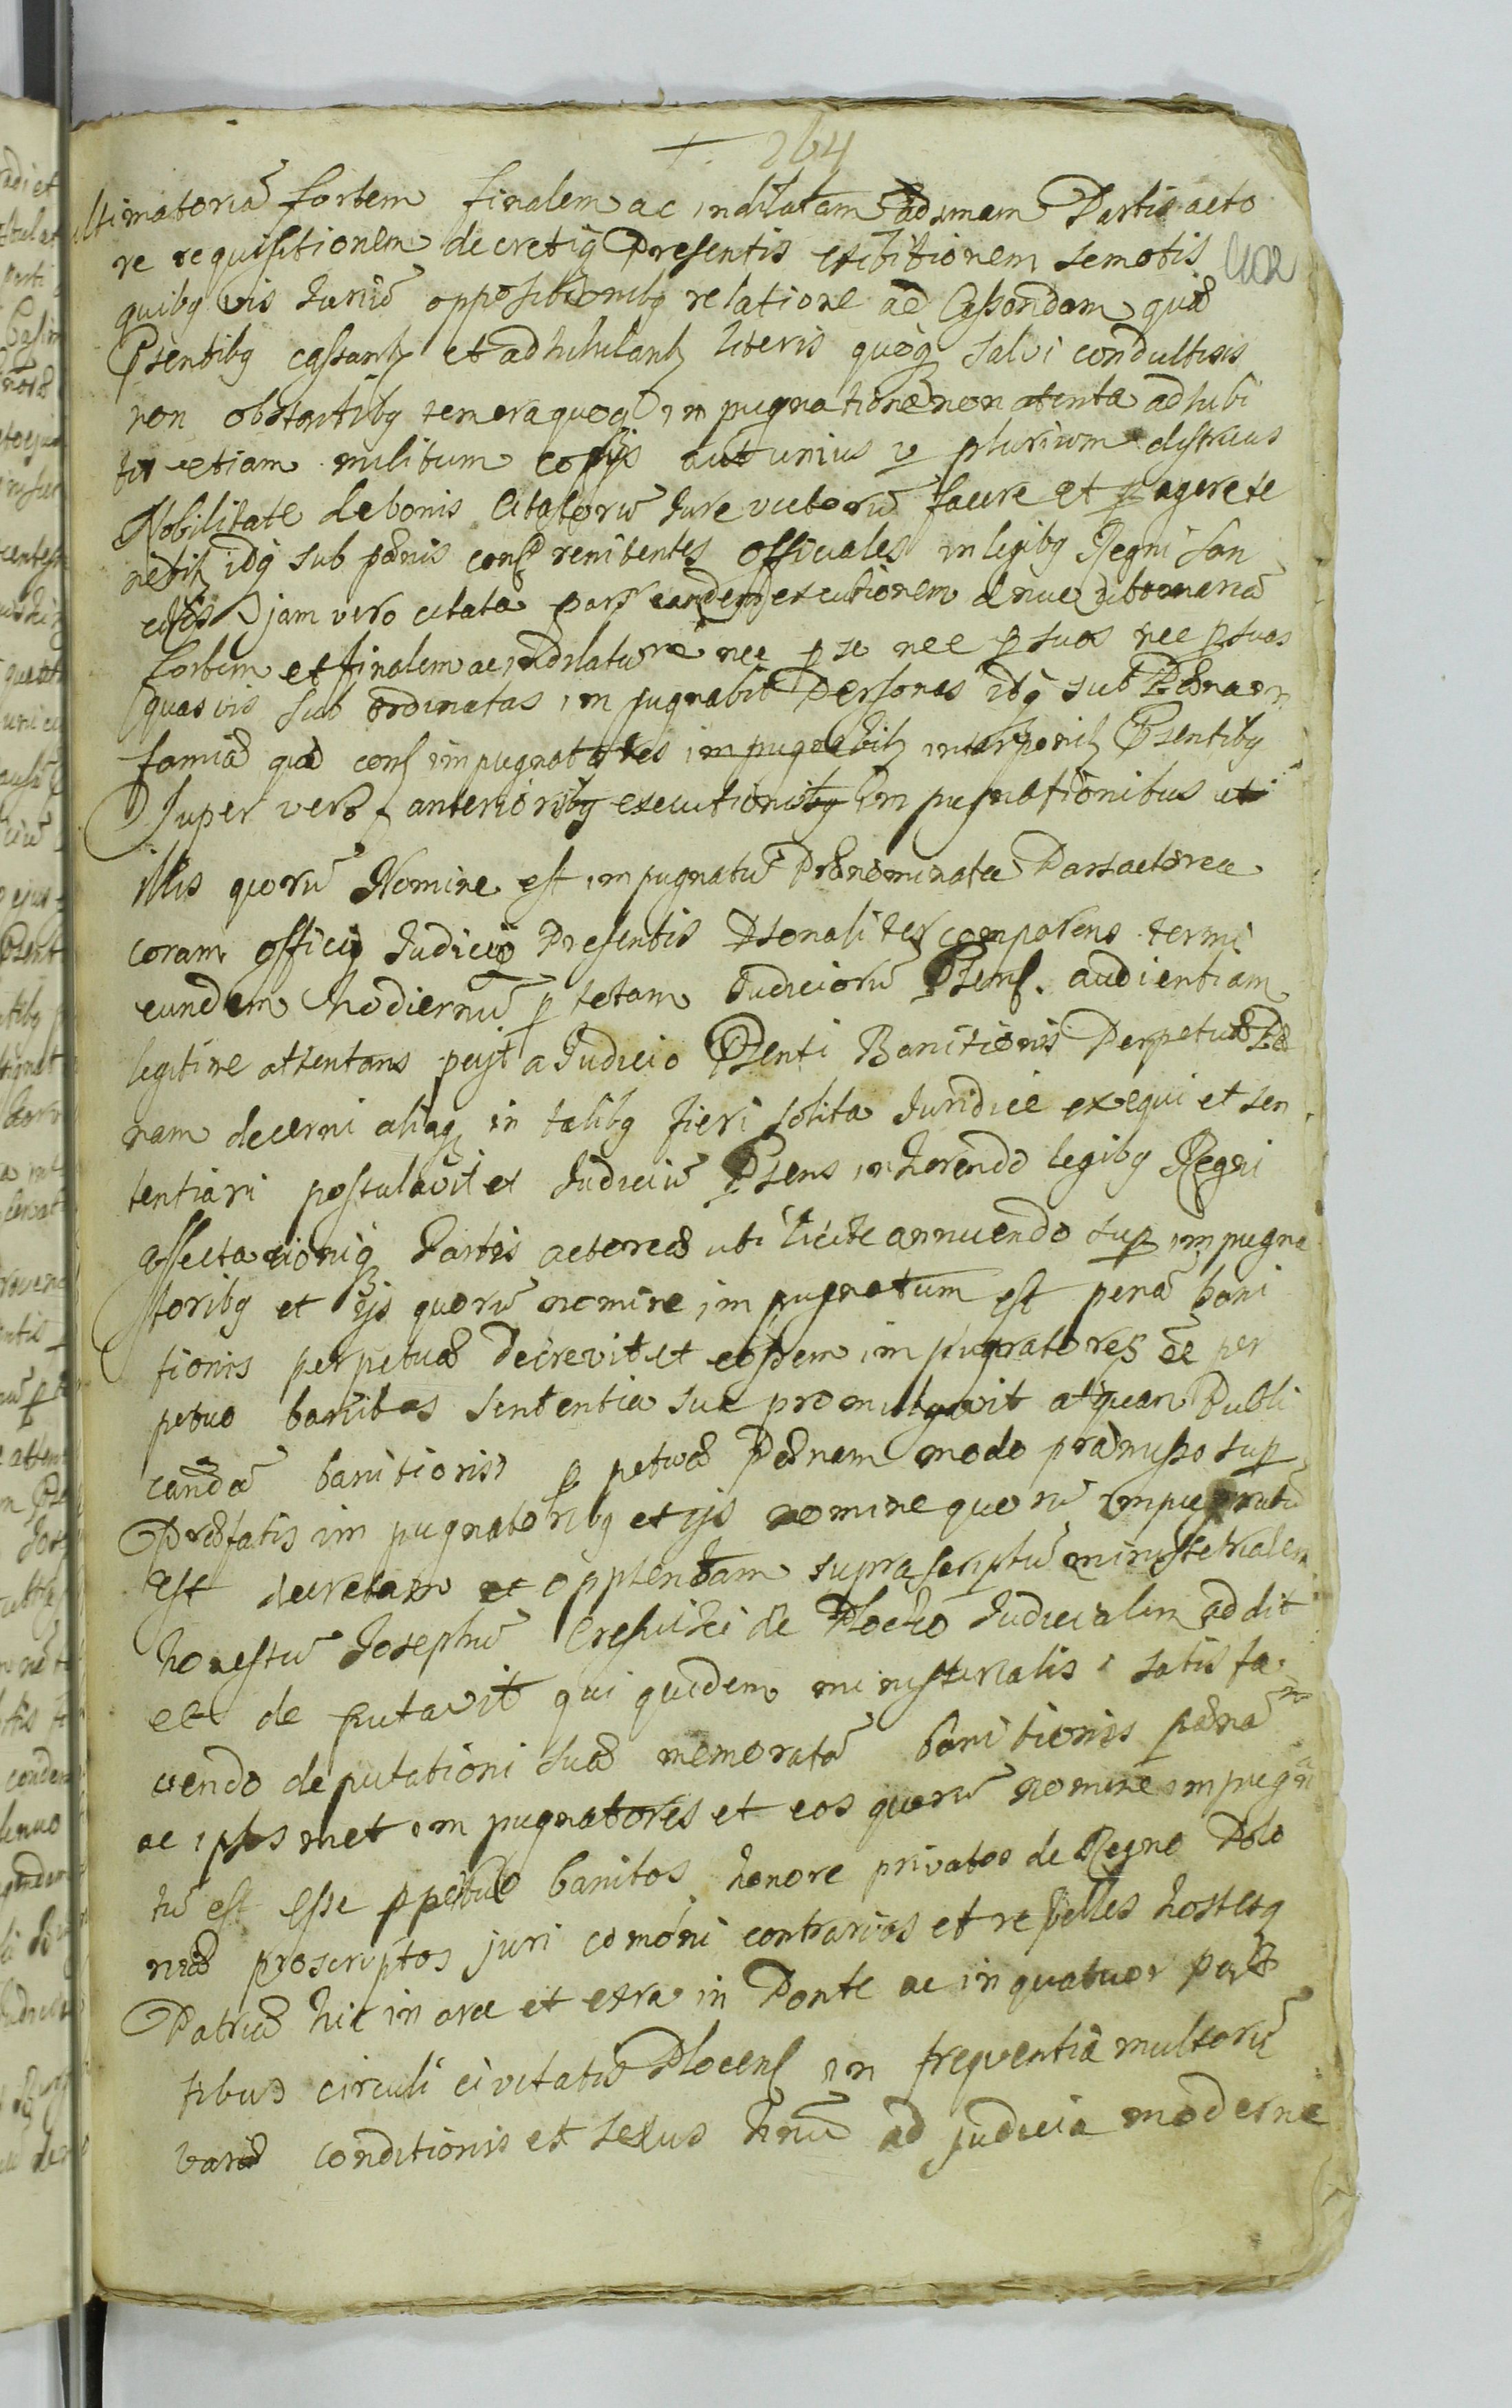 264
ltimatoriã fortem finalem ac indilatam ad unam Partis acto
re requisitionem decretiq Presentis exibitionem semotis
402
quibq vis Juriũ oppositionibq relatione ad Cassandam quæ
Psentibq cassantz et adhihilantz literis quoq salvi conductus
non obstantibq temeraquoq impugnatione non atenta adhibi
tis etiam militum copijs aut unius v plurium districtus
Nobilitate de bonis Citatorũ Jure victorũ facere et p agere te
nebitz idq sub pænis conf renitentes Officiales in legibq Regni san
citis jam vero citata pars eandem executionem denuo ultimariã
fortem et finalem ac indilatã nec p se nec p suos nec p suas
quas vis sub ordinatas impugnabit Personas idq sub Pæna in
famiæ quæ conf impugnatores impugnabitz interponitz Psentibq
Super vero anterioribq executionibq impugnationibus uti
illis quorũ Nomine est impugnatũ Prænominata Pars actorea
coram officij Judicio Presentis Psonaliter comparens termi
eundem hodiernũ p totam Judiciorũ Psenf. audientiam
legitime attentans petijt a Judicio Psenti Banitionis Perpetuæ Pæ
nam decerni aliaq in talibq fieri solita Juridice exequi et sen
tentiari postulavit et Judiciũ Psens inhærendo legibq Regni
affectationiq Partis actoreæ uti licite annuendo sup impugna
toribq et ijs quorũ nomine impugnatum est penã bani
tionis perpetuæ decrevit et eosdem impugnatores ee per
petuo banitos sententia sua promulgavit at quam Publi
candã banitionis p petuæ Pænam modo præmisso sup
Præfatis impugnatoribq et ijs nomine quorũ impugnatũ
est decretam et opptendam suprascriptũ ministerialem
honestũ Josephũ de Plocko Judicialem addit
et de putavit qui quidem ministerialis satis fa
ciendo deputationi suæ memoratã banitionis pænã
ac ipsos met impugnatores et eos quorũ nomine impugna
tũ est esse ppetuo banitos honore privatos de Regno Polo
niæ proscriptos juri comoni contrarios et rebelles hostesq
Patriæ hic in arce et extra in Ponte ac in quatuor par
tibus circuli civitatis Plocenf in frequentia multorũ
variæ conditionis et sexus hinũ ad judicia moderna